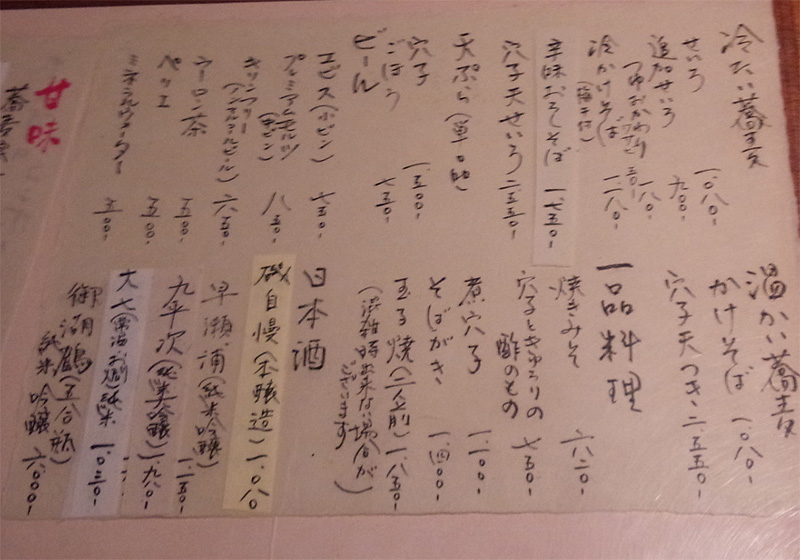 冷たい蕎麦
せいろ 一、〇八〇
追加せいろ 九〇〇
つゆおかわり 一八〇
冷かけそば 一、一八〇
辛味おろしそば 一、七五〇
穴子天せいろ 二、五五〇
天ぷら（単品）
穴子 一、五〇〇
ごぼう 七五〇
ビール
ヱビス（小ビン） 六五〇
プレミアムモルツ（中ビン） 八五〇
キリンフリー（ノンアルコールビール） 六五〇
ウーロン茶 五〇〇
ペリエ 五〇〇
ミネラルウォーター 五〇〇
甘味
温かい蕎麦
かけそば 一、〇八〇
穴子天つき 二、五五〇
一品料理
焼きみそ 六二〇
穴子ときゅうりの
酢のもの 七五〇
煮穴子 一、一〇〇
そばがき 一、四〇〇
玉子焼（二人前） 一、八五〇
（混雑時出来ない場合が
ございます）
日本酒
磯自慢（本醸造） 一、〇八〇
早瀬浦（純米吟醸） 一、一五〇
九平次（純米吟醸） 一、一九〇
大七（常温・お燗）純米 一、〇五〇
御湖鶴（五合瓶）
純米吟醸 六、〇〇〇